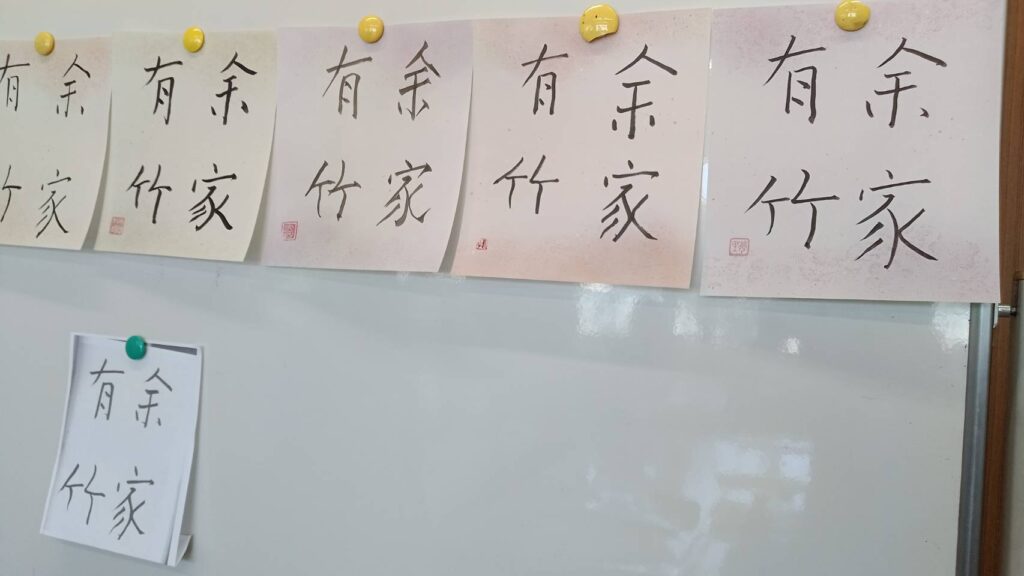 余家
有竹
余家
有竹
余家
有竹
余家
有竹
余家
有竹
余家
有竹